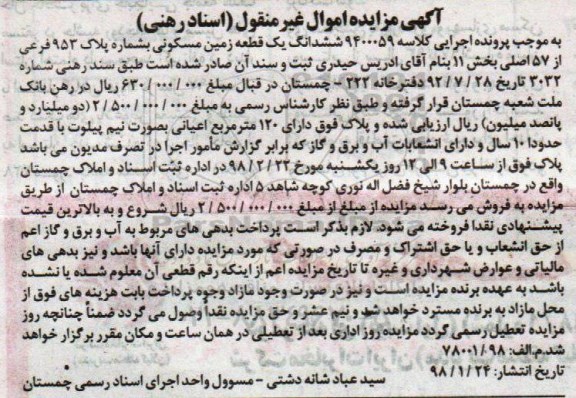 آگهی مزایده اموال غیر منقول (اسناد رهنی)
به موجب پرونده اجرایی کلاسه ۹۴۰۰۰۵۹ ششدانگ یک قطعه زمین مسکونی بشماره پلاک ۹۵۳ فرعی
از ۵۷ اصلی بخش ۱۱ بنام آقای ادریس حیدری ثبت و سند آن صادر شده است طبق سند رهنی شماره
۳۰۳۲ تاریخ ۹۲/۷/۲۸ دفترخانه ۲۲۲ - چمستان در قبال مبلغ ۶۳۰/۰۰۰/۰۰۰ ریال در رهن بانک
ملت شعبه چمستان قرار گرفته و طبق نظر کارشناس رسمی به مبلغ ۲/۵۰۰/۰۰۰/۰۰۰ (دو میلیارد و
پانصد میلیون) ریال ارزیابی شده و پلاک فوق دارای ۱۲۰ مترمربع اعیانی بصورت نیم پیلوت با قدمت
حدودا ۱۰ سال و دارای انشعابات آب و برق و گاز که برابر گزارش مأمور اجرا در تصرف مدیون می باشد
پلاک فوق از ساعت ۹ الی ۱۲ روز یکشنبه مورخ ۹۸/۲/۲۲ در اداره ثبت اسناد و املاک چمستان
واقع در چمستان بلوار شیخ فضل اله نوری کوچه شاهد ۵ اداره ثبت اسناد و املاک چمستان از طریق
مزایده به فروش می رسد مزایده از مبلغ از مبلغ ۲/۵۰۰/۰۰۰/۰۰۰ ریال شروع و به بالاترین قیمت
پیشنهادی نقدا فروخته می شود. لازم بذکر است پرداخت بدهی های مربوط به آب و برق و گاز اعم
از حق انشعاب و یا حق اشتراک و مصرف در صورتی که مورد مزایده دارای آنها باشد و نیز بدهی های
مالیاتی و عوارض شهرداری و غیره تا تاریخ مزایده اعم از اینکه رقم قطعی آن معلوم شده یا نشده
باشد به عهده برنده مزایده است و نیز در صورت وجود مازاد وجوه پرداخت بابت هزینه های فوق از
محل مازاد به برنده مسترد خواهد شد و نیم عشر و حق مزایده نقداً وصول می گردد ضمناً چنانچه روز
مزایده تعطیل رسمی گردد مزایده روز اداری بعد از تعطیلی در همان ساعت و مکان مقرر برگزار خواهد
شد.م.الف: ۷۸۰۰۱/۹۸
تاریخ انتشار: ۹۸/۱/۲۴
سید عباد شانه دشتی - مسوول واحد اجرای اسناد رسمی چمستان